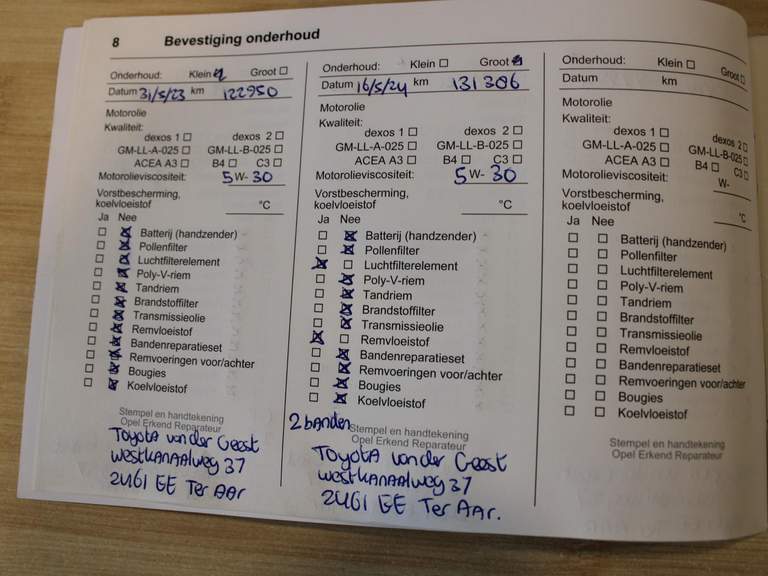 8 Bevestiging onderhoud
Onderhoud: Klein ☒ Groot ☐
Datum 31/5/23 km 122950
Motorolie
Kwaliteit:
dexos 1 ☐ dexos 2 ☐
GM-LL-A-025 ☐ GM-LL-B-025 ☐
ACEA A3 ☐ B4 ☐ C3 ☐
Motorolieviscositeit: 5 W- 30
Vorstbescherming,
koelvloeistof °C
Ja Nee
☐ ☒ Batterij (handzender)
☐ ☒ Pollenfilter
☐ ☒ Luchtfilterelement
☐ ☒ Poly-V-riem
☐ ☒ Tandriem
☐ ☒ Brandstoffilter
☐ ☒ Transmissieolie
☐ ☒ Remvloeistof
☐ ☒ Bandenreparatieset
☐ ☒ Remvoeringen voor/achter
☐ ☒ Bougies
☐ ☒ Koelvloeistof
Stempel en handtekening
Opel Erkend Reparateur
Toyota van der Geest
Westkanaalweg 37
2461 EE Ter Aar
Onderhoud: Klein ☐ Groot ☒
Datum 16/5/24 km 131306
Motorolie
Kwaliteit:
dexos 1 ☐ dexos 2 ☐
GM-LL-A-025 ☐ GM-LL-B-025 ☐
ACEA A3 ☐ B4 ☐ C3 ☐
Motorolieviscositeit: 5 W- 30
Vorstbescherming,
koelvloeistof °C
Ja Nee
☐ ☒ Batterij (handzender)
☐ ☒ Pollenfilter
☒ ☐ Luchtfilterelement
☐ ☒ Poly-V-riem
☐ ☒ Tandriem
☐ ☒ Brandstoffilter
☐ ☒ Transmissieolie
☒ ☐ Remvloeistof
☐ ☒ Bandenreparatieset
☐ ☒ Remvoeringen voor/achter
☐ ☒ Bougies
☐ ☒ Koelvloeistof
2 banden
Stempel en handtekening
Opel Erkend Reparateur
Toyota van der Geest
Westkanaalweg 37
2461 EE Ter Aar.
Onderhoud: Klein ☐ Groot ☐
Datum km
Motorolie
Kwaliteit:
dexos 1 ☐ dexos 2 ☐
GM-LL-A-025 ☐ GM-LL-B-025 ☐
ACEA A3 ☐ B4 ☐ C3 ☐
Motorolieviscositeit: W-
Vorstbescherming,
koelvloeistof °C
Ja Nee
☐ ☐ Batterij (handzender)
☐ ☐ Pollenfilter
☐ ☐ Luchtfilterelement
☐ ☐ Poly-V-riem
☐ ☐ Tandriem
☐ ☐ Brandstoffilter
☐ ☐ Transmissieolie
☐ ☐ Remvloeistof
☐ ☐ Bandenreparatieset
☐ ☐ Remvoeringen voor/achter
☐ ☐ Bougies
☐ ☐ Koelvloeistof
Stempel en handtekening
Opel Erkend Reparateur